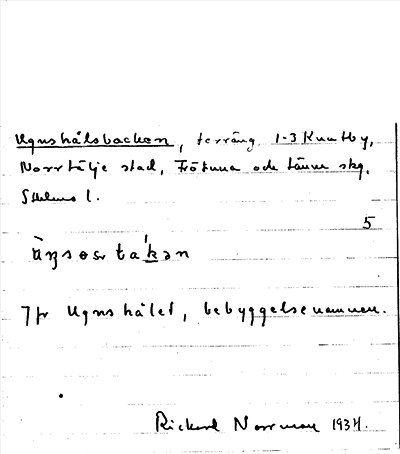 Ugnshålsbacken, terräng 1-3 Knutby,
Norrtälje stad, Frötuna och Länna skg.
Sthlms l.
5
Jfr Ugnshålet, bebyggelsenamnen.
Rickard Norrman 1934.